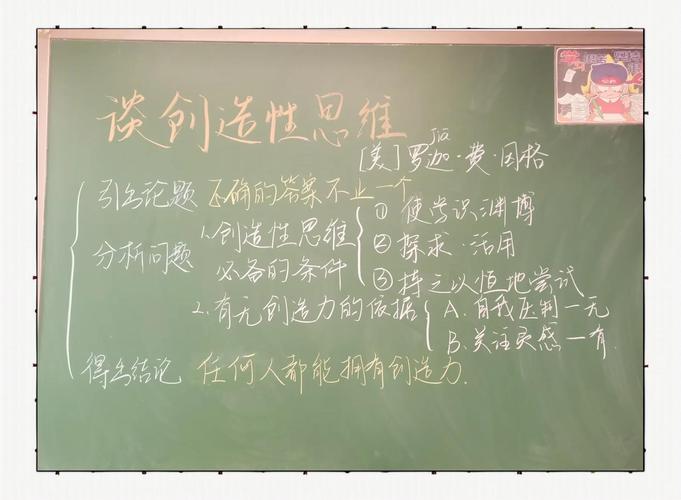 谈创造性思维
jiā
[美]罗迦·费·因格
引出论题 正确的答案不止一个
分析问题
1.创造性思维
必备的条件
① 使学识渊博
② 探求·活用
③ 持之以恒地尝试
2.有无创造力的依据
A. 自我压制—无
B. 关注灵感—有.
得出结论 任何人都能拥有创造力.